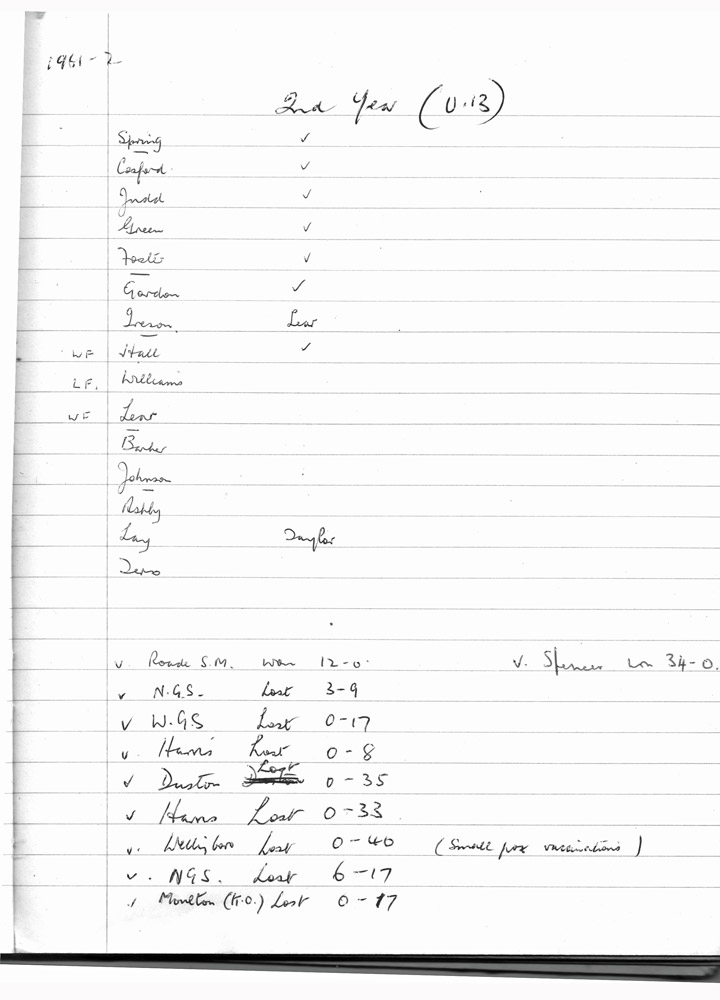 1961-2
2nd Year (U.13)
Spring ✓
Cosford ✓
Judd ✓
Green ✓
Foster ✓
Gordon ✓
Ireson Lear
WF Hall ✓
LF. Williams
WF Lear
Barker
Johnson
Ashby
Lay Taylor
Zero
v. Roade S.M. won 12-0. v. Spencer won 34-0.
v N.G.S. Lost 3-9
v W.G.S Lost 0-17
v. Harris Lost 0-8
v Duston Lost 0-35
v Harris Lost 0-33
v. Wellingboro Lost 0-40 (Small pox vaccinations)
v. NGS. Lost 6-17
v Moulton (K.O.) Lost 0-17